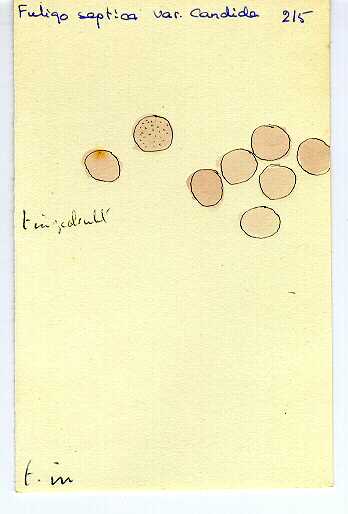 Fuligo septica var. Candida 2/5
t. in